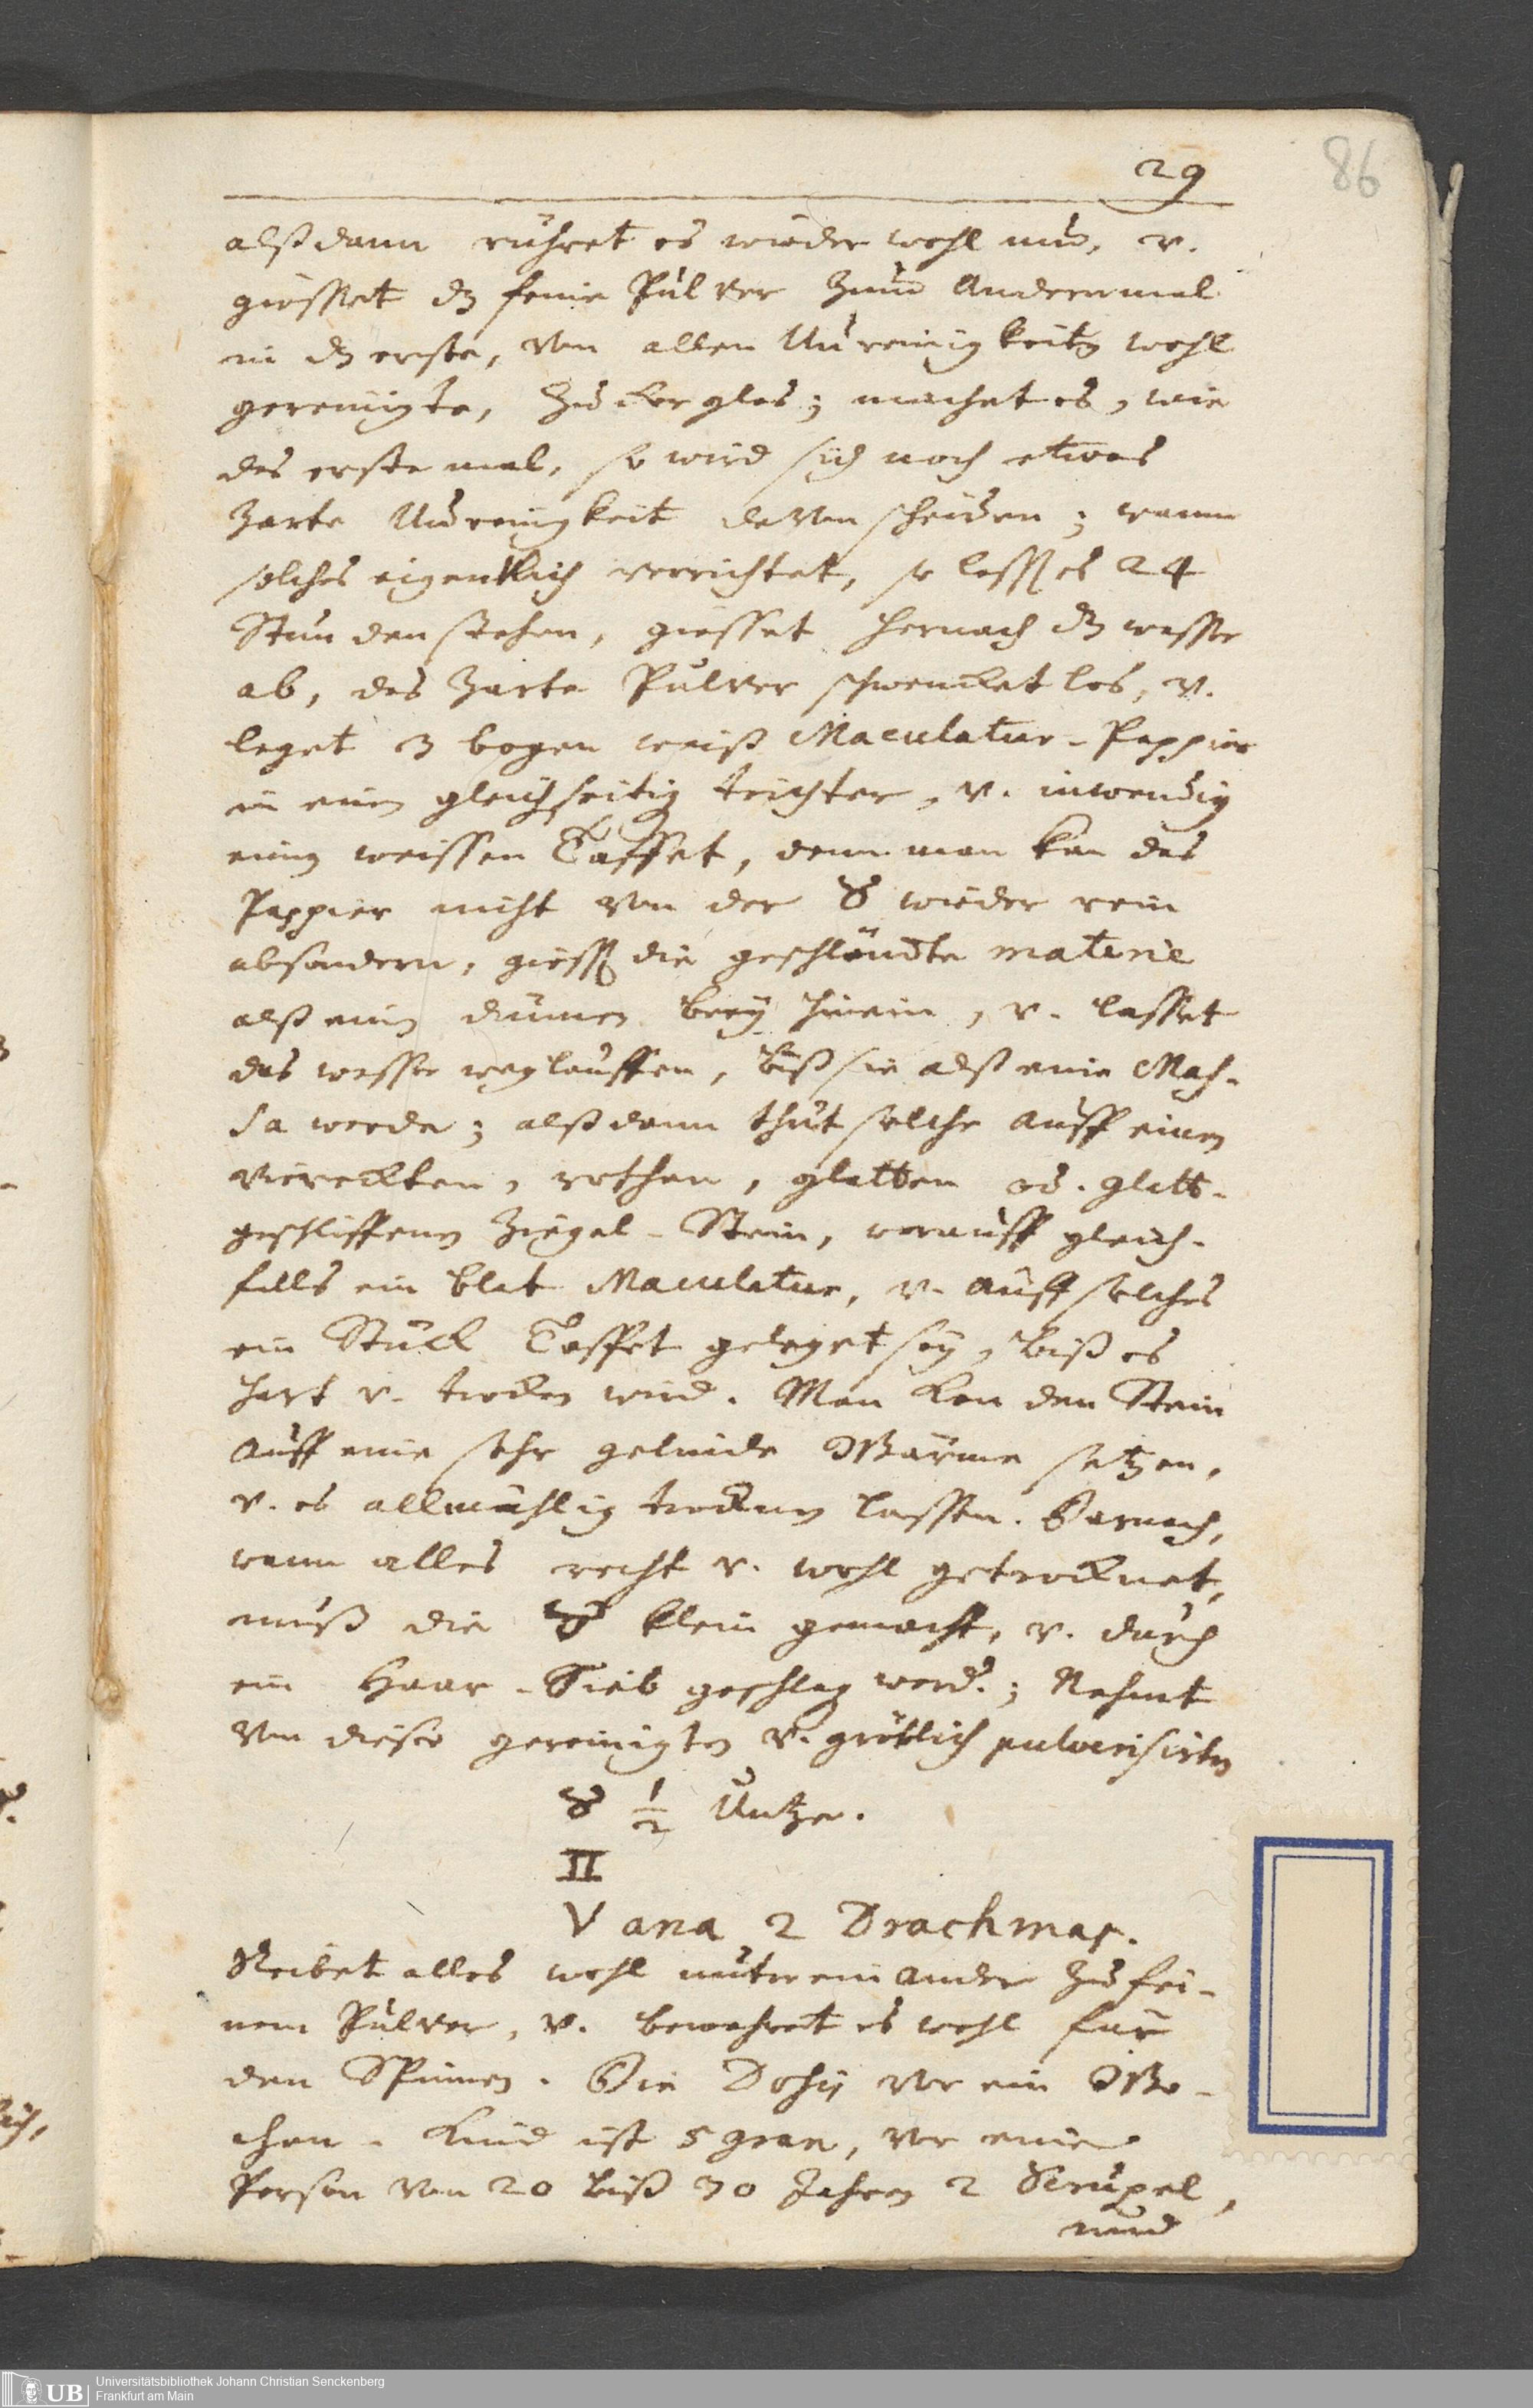 29
86
alßdann rühret es wieder wohl um, v.
giesset dz feine Pulver zum Andernmal
in dz erste, von allen Unreinigkeitn wohl
gereinigte, Zuckerglas; machet es, wie
das erste mal, so wird sich noch etwas
zarte Unreinigkeit davon scheiden; wann
solches eigentlich verrichtet, so lasset es 24
Stunden stehen, giesset hernach dz wasser
ab, das zarte Pulver schwencket los, v.
leget 3 bogen weiß Maculatur-Pappier
in einen gleichseitig trichter, v. inwendig
einen weissen Taffet, denn man kan das
Pappier nicht von der ♉ wieder rein
absondern, giesset die geschländte materie
alß einen dünnen brey hinein, v. lasset
das wasser weglauffen, biß sie alß eine Mas-
sa werde; alßdann thut solche auff einen
viereckten, rothen, glatten od. glatt-
geschliffenen Ziegel-Stein, worauff gleich-
falls ein blat Maculatur, v. auff solches
ein Stück Taffet geleget sey, biß es
hart v. trocken wird. Man kan den Stein
auff eine sehr gelinde Wärme setzen,
v. es allmählig trocknen lassen. Darnach,
wann alles recht v. wohl getrocknet,
muß die ♉ klein gemacht, v. durch
ein Haar-Sieb geschlagen werd.; Nehmt
von dieser gereinigten v. gröblich pulverisirten
♉ 1/2 Untze.
II
V ana 2 Drachmas.
Reibet alles wohl untereinander zu fei-
nem Pulver, v. bewahret es wohl für
den Spinnen. Die Dosis vor ein Wo-
chen-Kind ist 5 gran, vor eine
Person von 20 biß 30 Jahren 2 Scrupel,
und
UB
Universitätsbibliothek Johann Christian Senckenberg
Frankfurt am Main